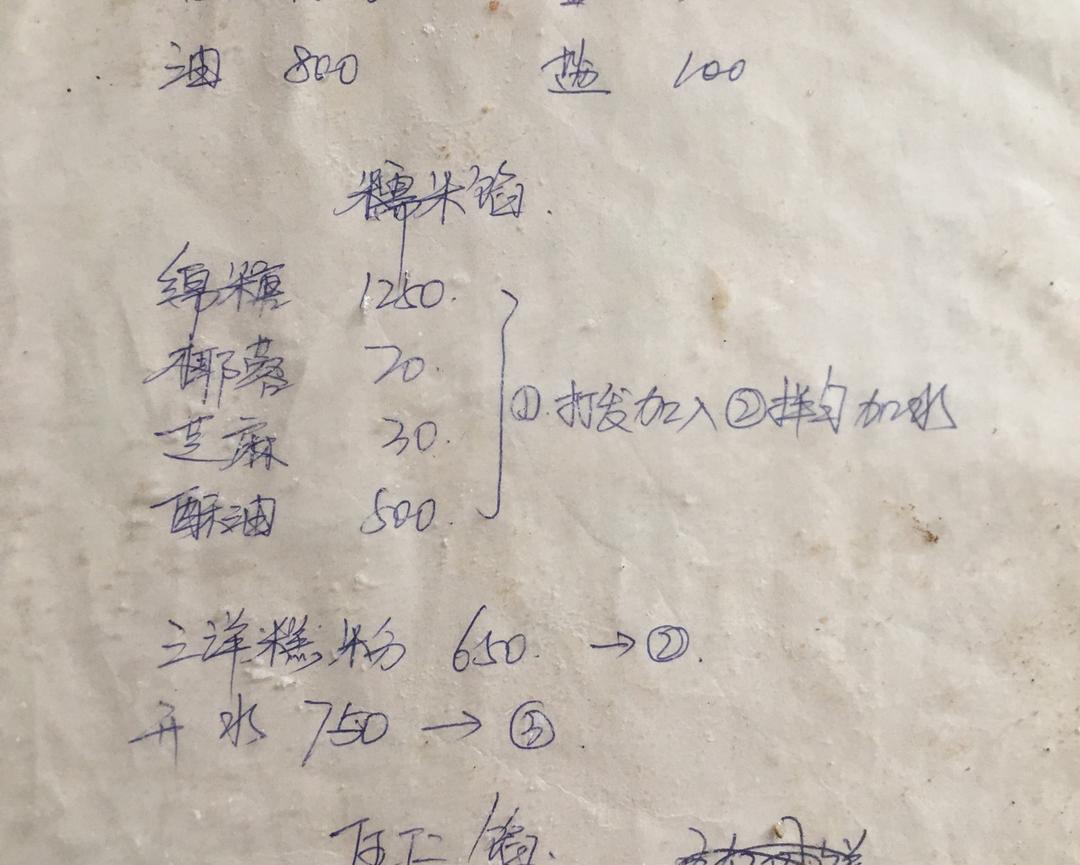 油 800 盐 100
糯米馅.
绵糖 1250.
椰蓉 20.
芝麻 30.
①.打发加入②拌匀加水
酥油 500.
三洋糕粉 650. →②.
开水 750 → ③
五仁馅.